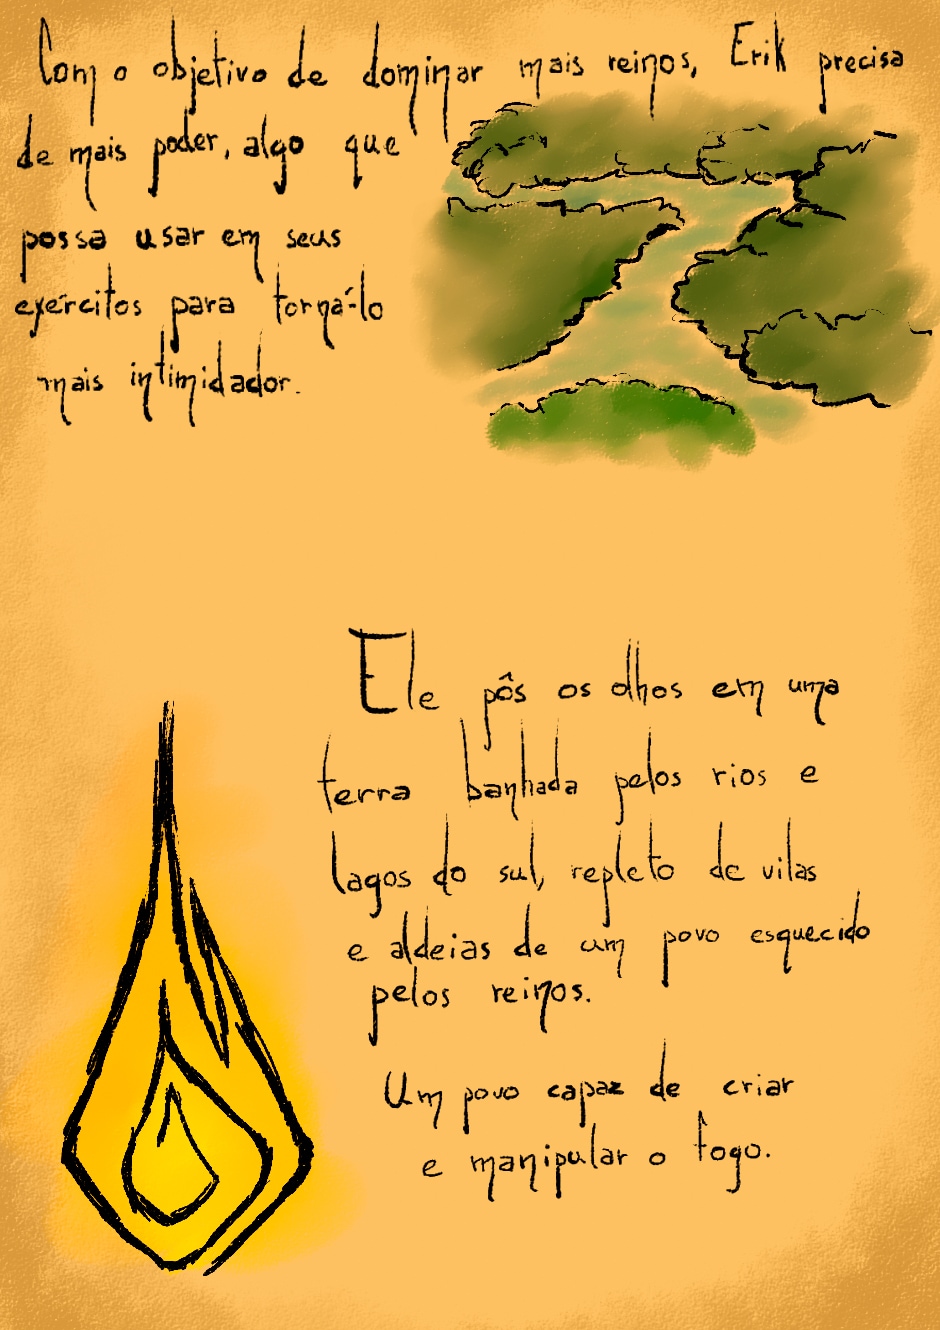 Com o objetivo de dominar mais reinos, Erik precisa
de mais poder, algo que
possa usar em seus
exércitos para torná-lo
mais intimidador.
Ele pôs os olhos em uma
terra banhada pelos rios e
lagos do sul, repleto de vilas
e aldeias de um povo esquecido
pelos reinos.
Um povo capaz de criar
e manipular o fogo.